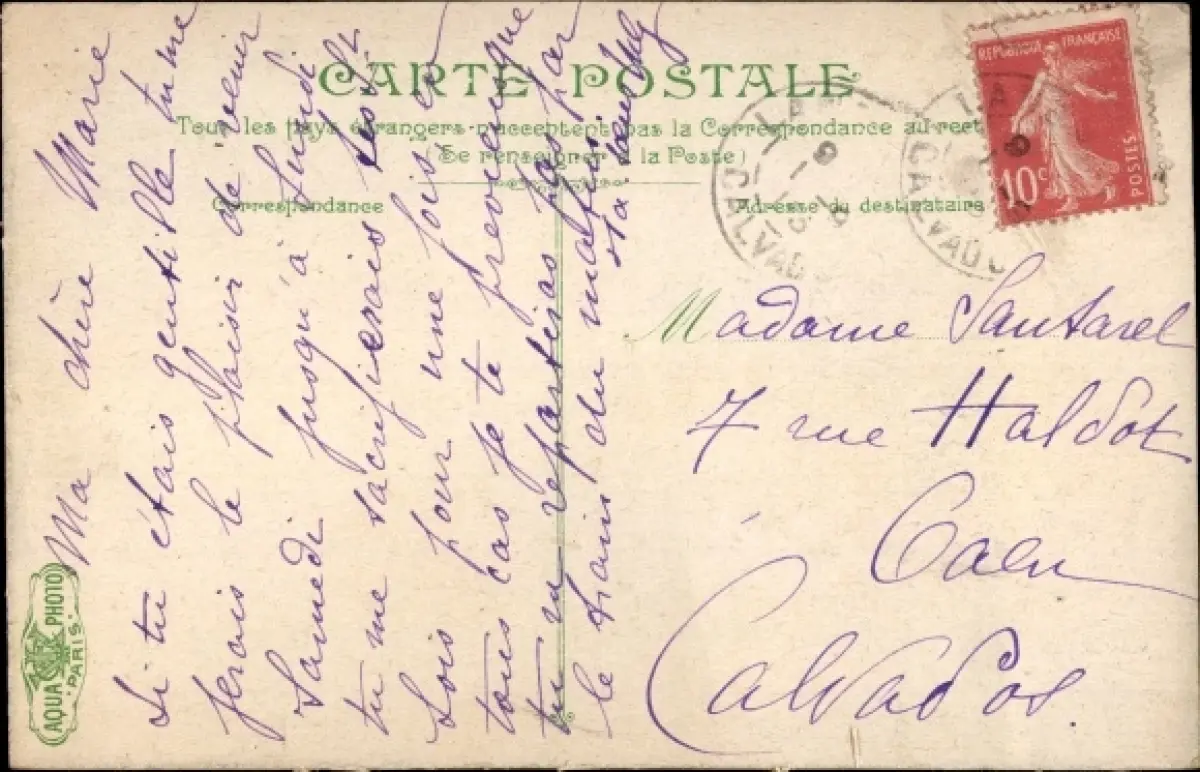 CARTE POSTALE
Tous les pays étrangers n'acceptent pas la Correspondance au rect
(Se renseigner à la Poste)
Correspondance
Adresse du destinataire
REPUBLIQUE FRANÇAISE
10c
POSTES
CALVADOS
CALVADOS
Ma chère Marie
Si tu étais gentille tu me
ferois le plaisir de venir
Samedi jusqu'à Lundi
tu me sacrifierais tes
Sois pour une fois, en
tous cas je te préviens que
tu ne repartiras pas par
le train du matin
Ta
Madame Santarel
7 rue Haldot
Caen
Calvados.
AQUA PHOTO
PARIS